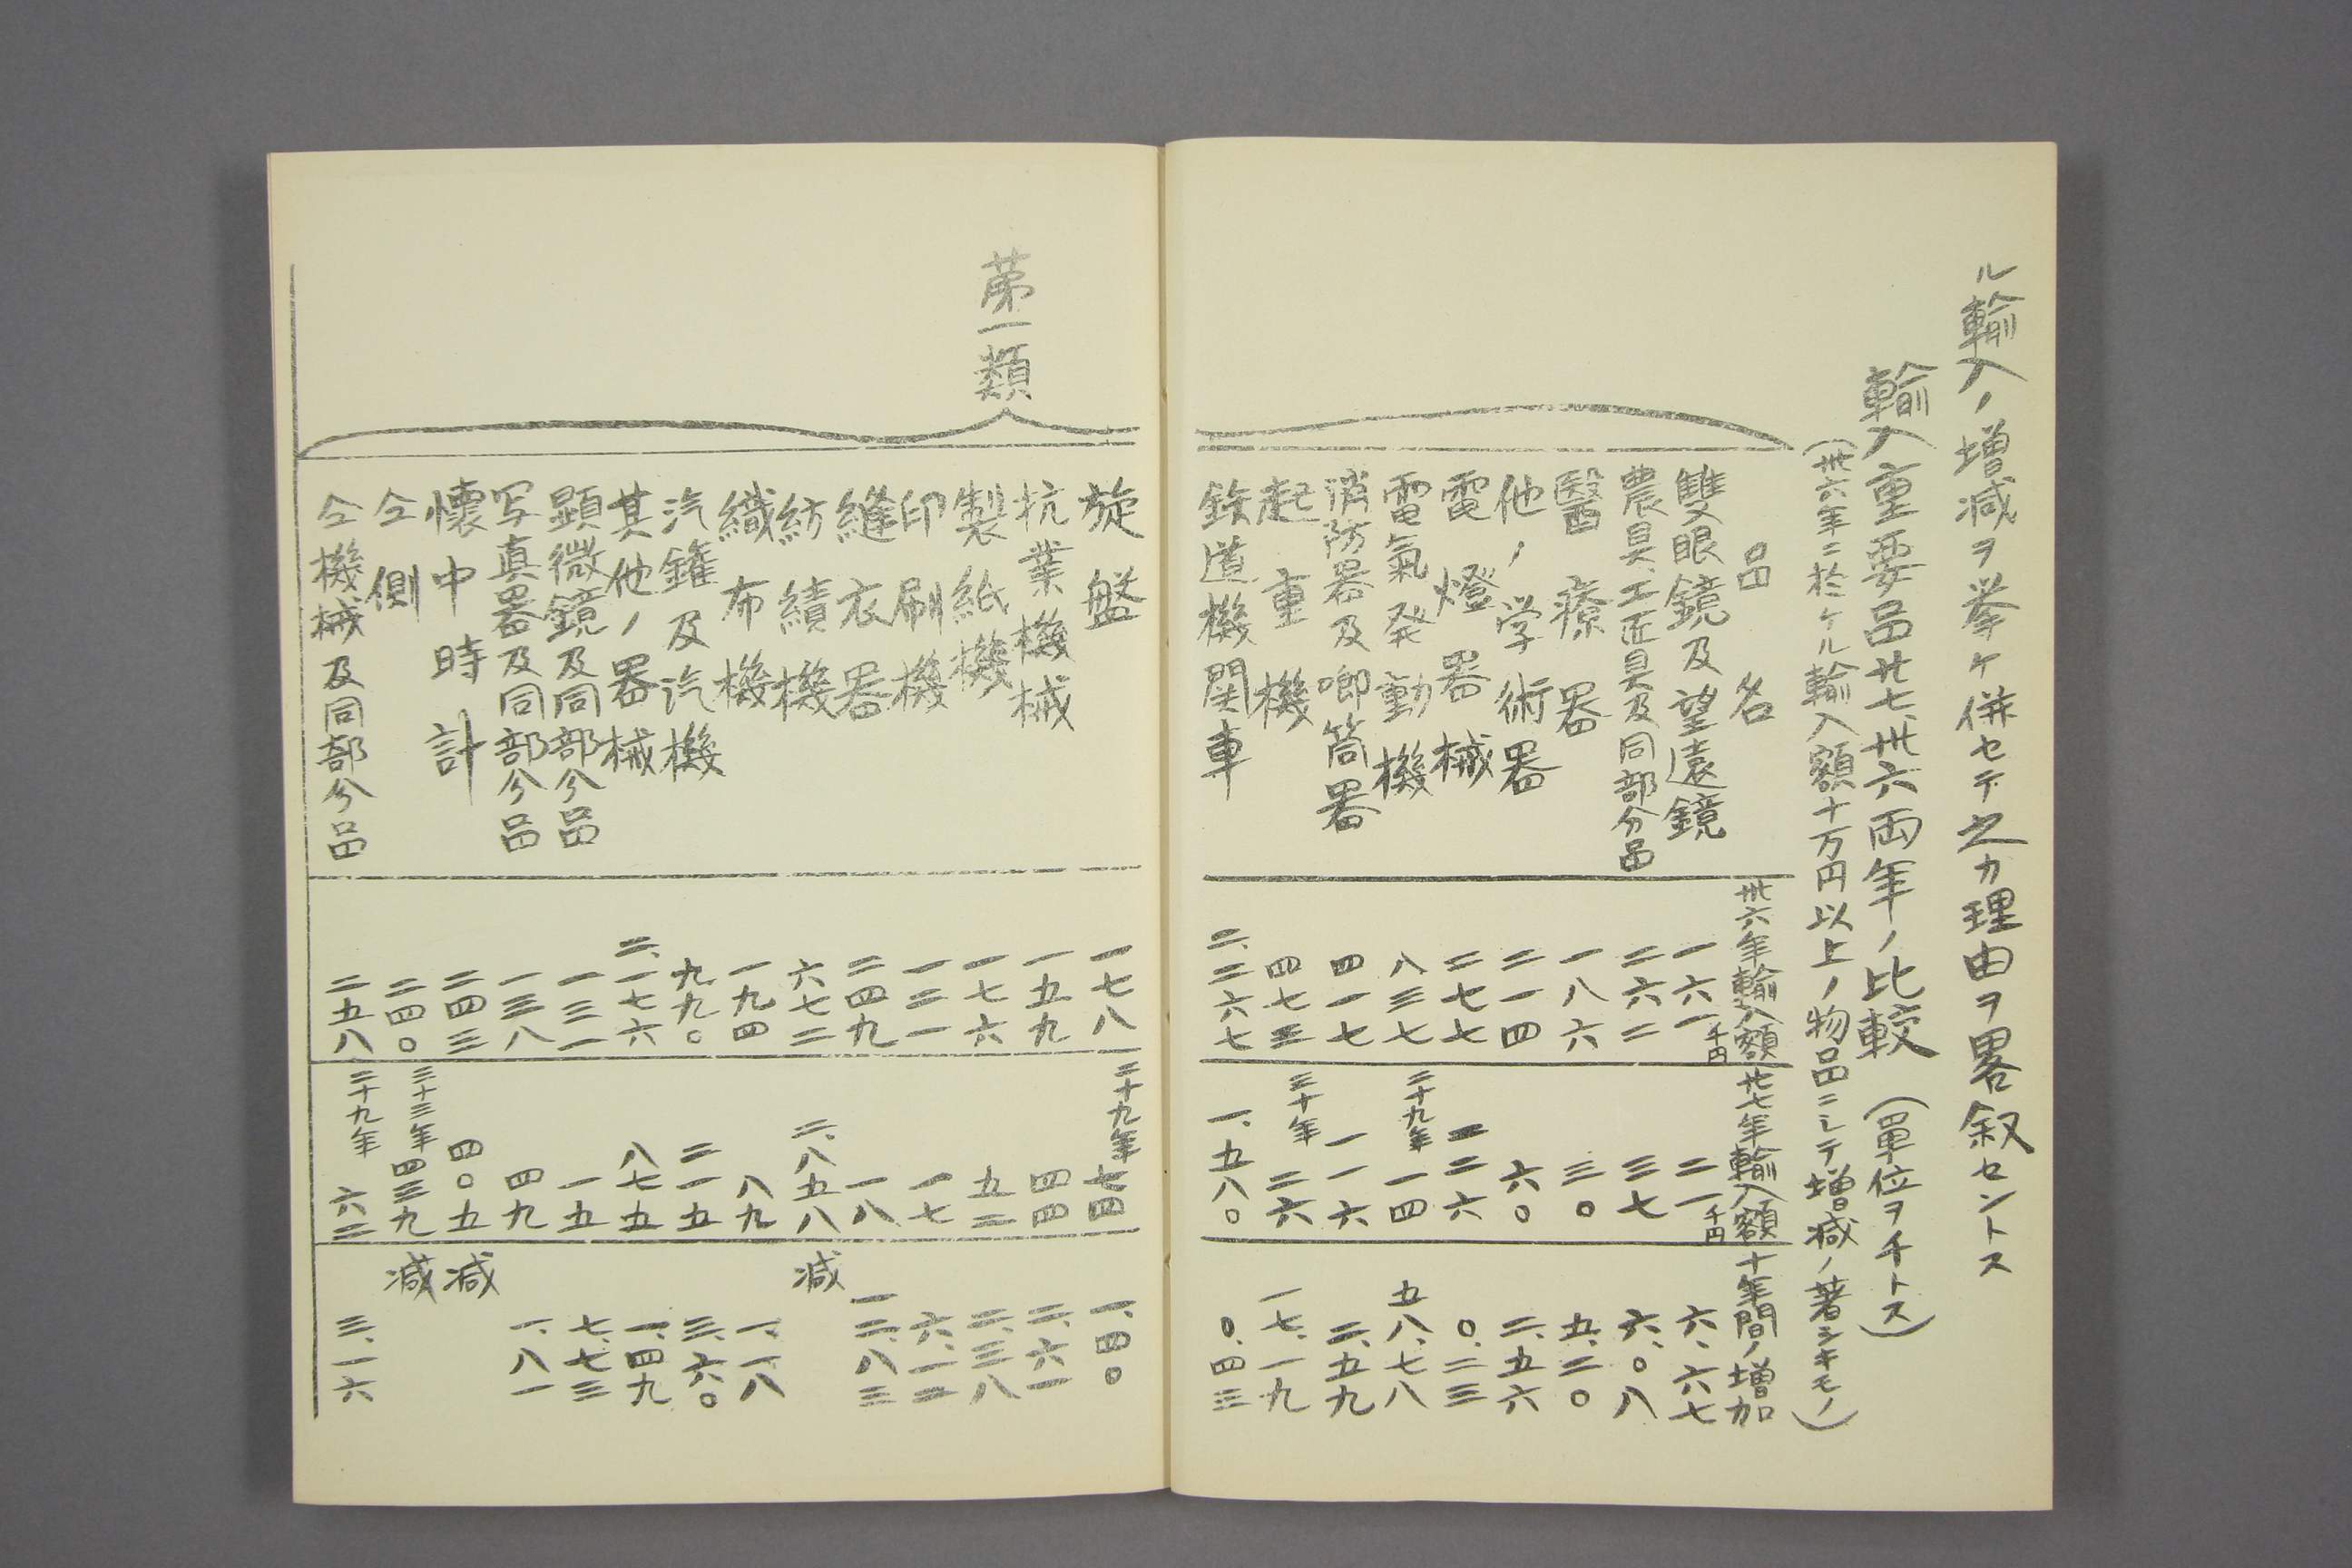 ル輸入ノ増减ヲ挙ケ併セテ之カ理由ヲ畧叙セントス
輸入重要品廿七、卅六両年ノ比較(單位ヲ千トス)
(卅六年ニ於ケル輸入額十万円以上ノ物品ニシテ増减ノ著シキモノ)
品名 卅六年輸入額 廿七年輸入額 十年間ノ増加
雙眼鏡及望遠鏡 一六一千円 二一千円 六、六七
農具、工匠具及同部分品 二六二 三七 六、〇八
醫療器 一八六 三〇 五、二〇
他ノ学術器 二一四 六〇 二、五六
電燈器械 二七七 二二六 〇、二三
電氣発動機 八三七 二十九年 一四 五八、七八
消防器及啣筒器 四一七 一一六 二、五九
起重機 四七三 三十年 二六 一七、一九
鉄道機関車 二、二六七 一、五八〇 〇、四三
第一類
旋盤 一七八 二十九年 七四 一、四〇
抗業機械 一五九 四四 二、六一
製紙機 一七六 五二 二、三八
印刷機 一二一 一七 六、一二
縫衣器 二四九 一八 一二、八三
紡績機 六七二 二、八五八 减
織布機 一九四 八九 一、一八
汽鑵及汽機 九九〇 二一五 三、六〇
其他ノ器械 二、一七六 八七五 一、四九
顕微鏡及同部分品 一三一 一五 七、七三
写真器及同部分品 一三八 四九 一、八一
懐中時計 二四三 四〇五 减
仝側 二四〇 三十三年 四三九 减
仝機械及同部分品 二五八 二十九年 六二 三、一六